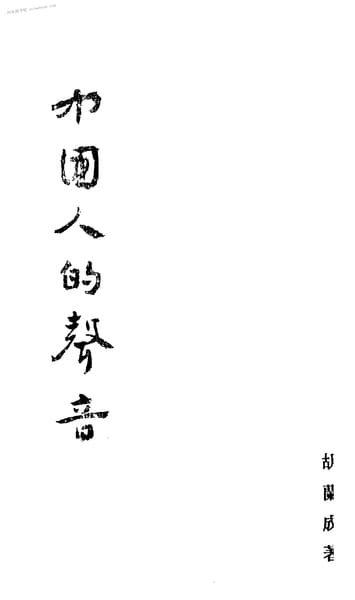 中國人的聲音
胡蘭成著